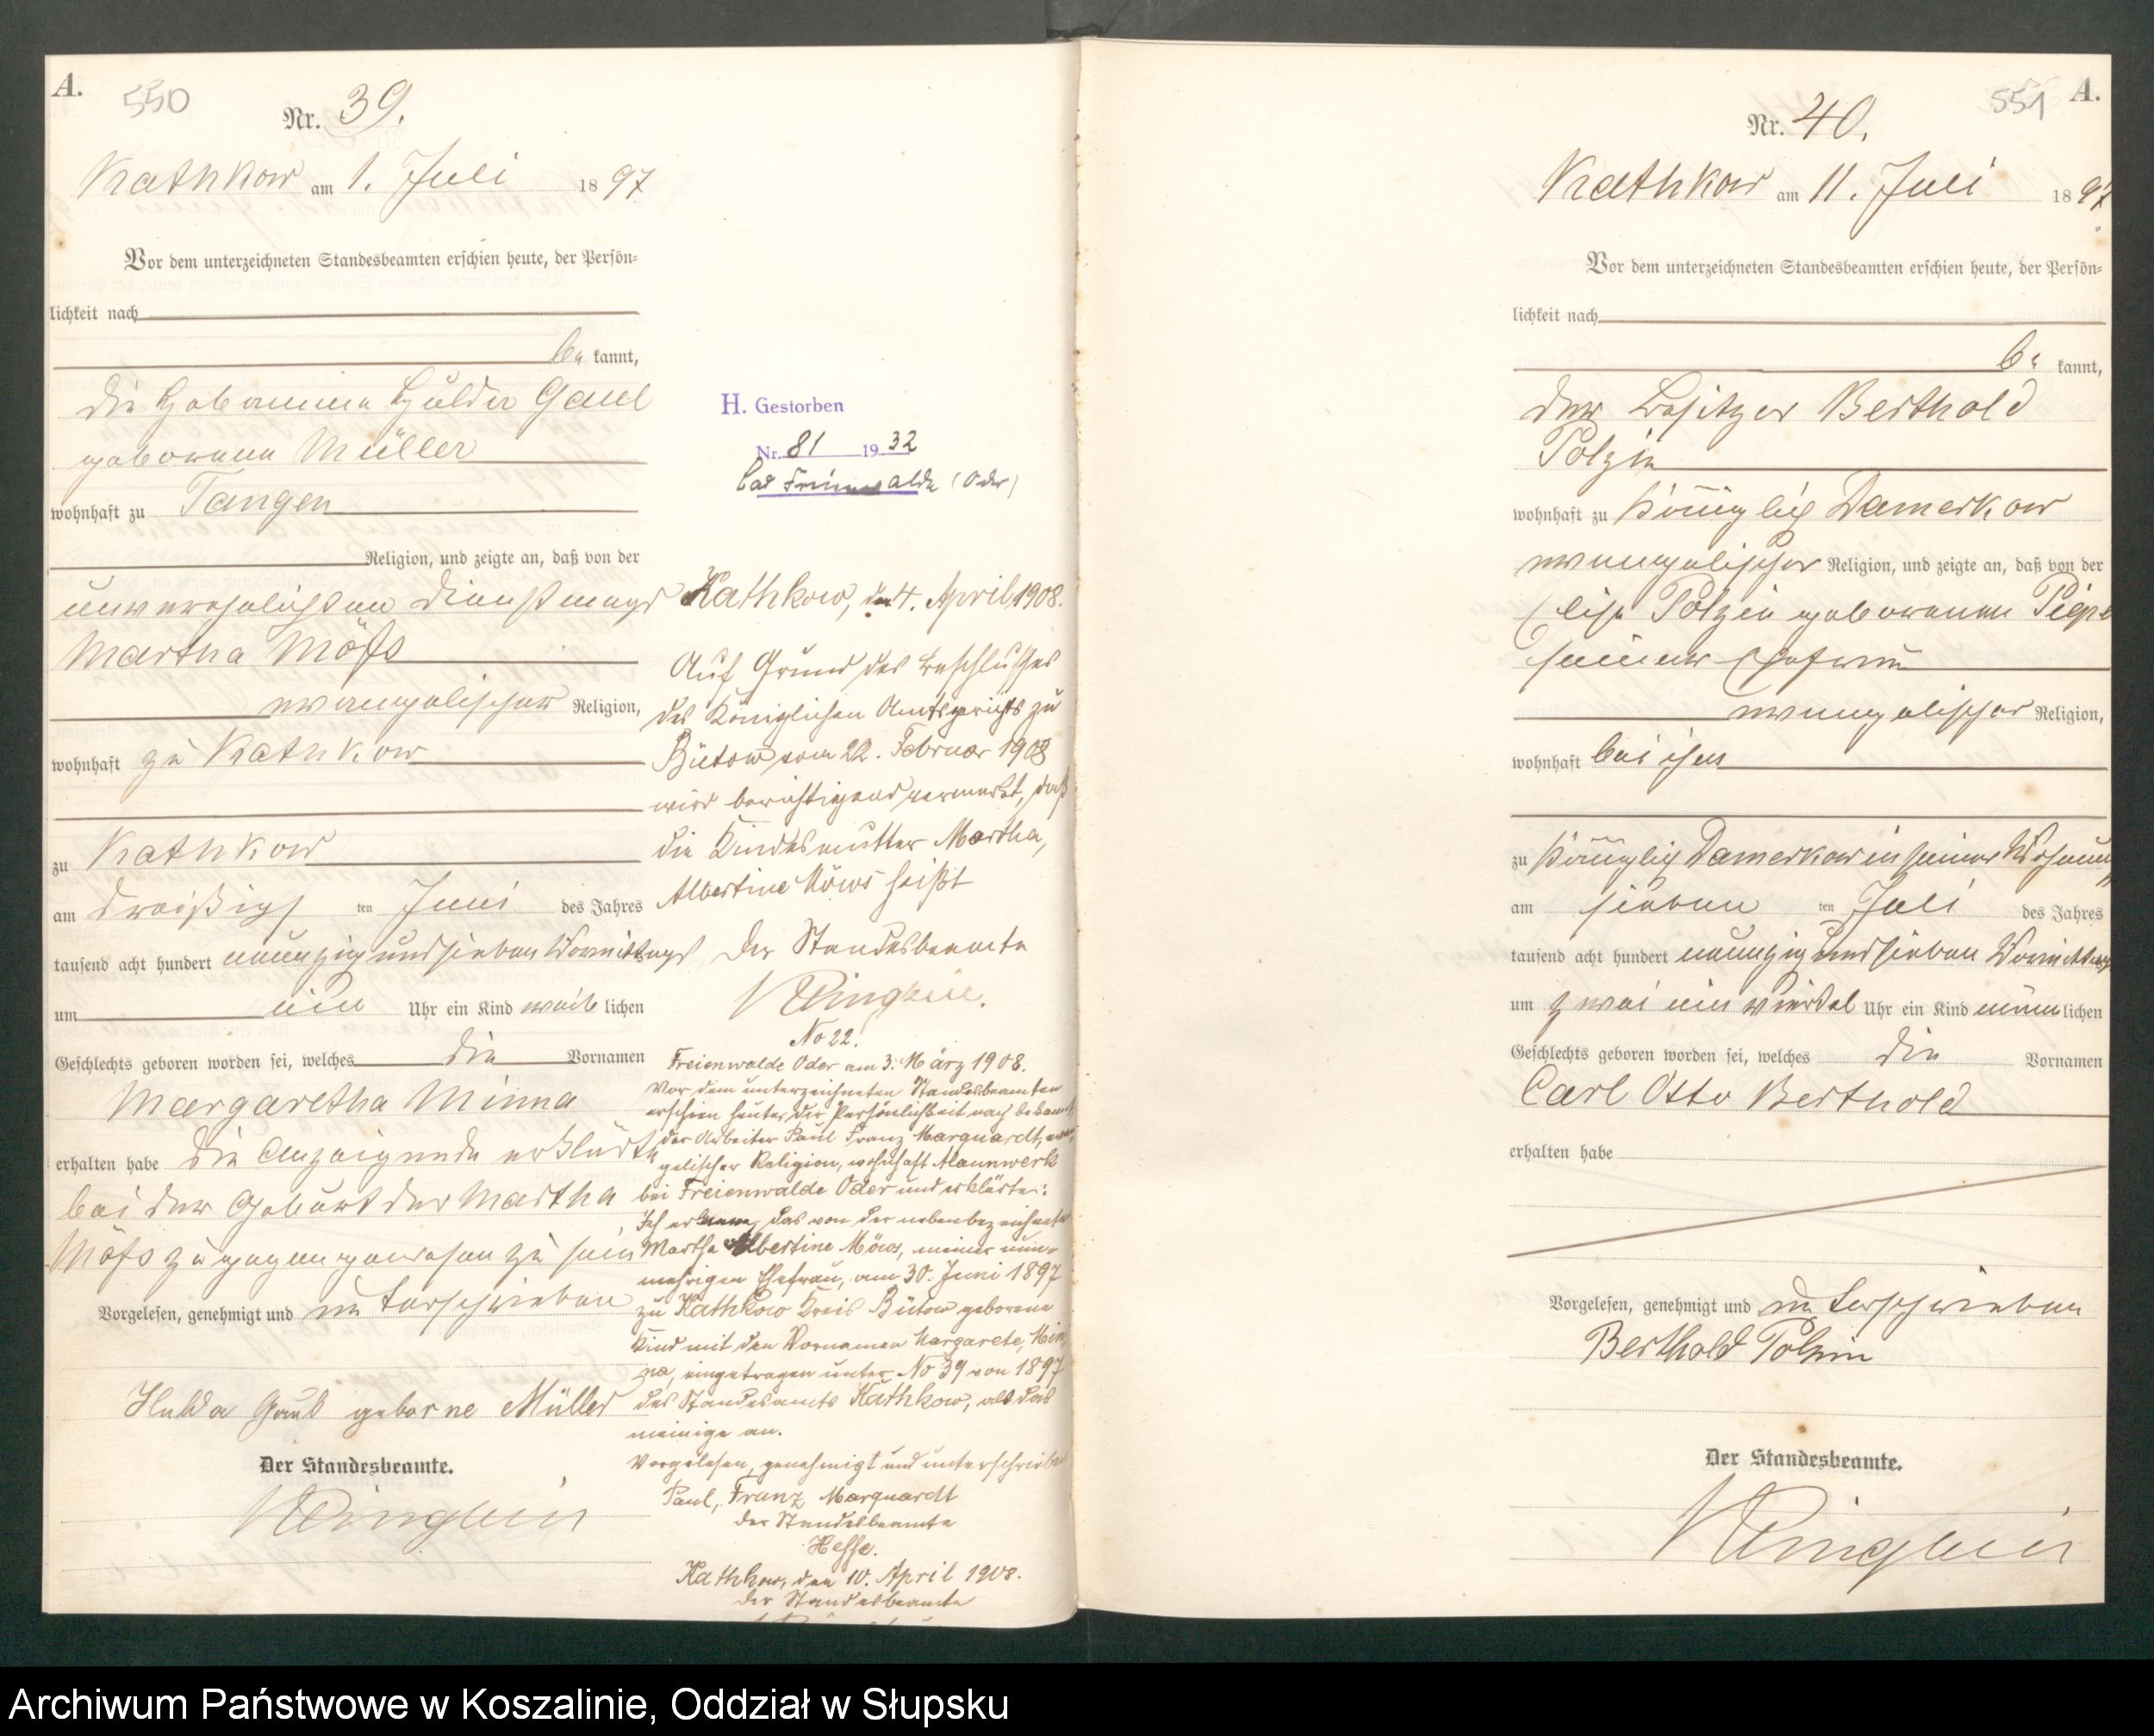 A.
550
Nr. 39.
Kathkow am 1. Juli 1897
Vor dem unterzeichneten Standesbeamten erschien heute, der Persön-
lichkeit nach
be kannt,
die Hebamme Hulda Gaul
geborene Müller
wohnhaft zu Tangen
Religion, und zeigte an, daß von der
unverehelichten Dienstmagd
Martha Möfs
evangelischer Religion,
wohnhaft zu Kathkow
zu Kathkow
am dreißigs ten Juni des Jahres
tausend acht hundert neunzig und sieben Vormittags
um ein Uhr ein Kind weib lichen
Geschlechts geboren worden sei, welches die Vornamen
Margaretha Minna
erhalten habe die Anzeigende erklärte
bei der Geburt der Martha
Möfs zugegen gewesen zu sein
Vorgelesen, genehmigt und unterschrieben
Hulda Gaul geborne Müller
Der Standesbeamte.
H. Gestorben
Nr. 81 1932
Bad Freienwalde (Oder)
Kathkow, den 4. April 1908.
Auf Grund des Beschlusses
des Königlichen Amtsgerichts zu
Bütow vom 22. Februar 1908
wird berichtigend vermerkt, daß
die Kindesmutter Martha,
Albertine Möws heißt
Der Standesbeamte
No 22.
Freienwalde Oder am 3. März 1908.
Vor dem unterzeichneten Standesbeamten
erschien heute, der Persönlichkeit nach bekannt,
der Arbeiter Paul Franz Marquardt, evan-
gelischer Religion, wohnhaft Alaunwerk
bei Freienwalde Oder und erklärte:
Ich erkenne das von der nebenbezeichneten
Martha Albertine Möws, meiner nun-
mehrigen Ehefrau, am 30. Juni 1897
zu Kathkow Kreis Bütow geborene
Kind mit den Vornamen Margarete, Min-
na, eingetragen unter No 39 von 1897
des Standesamts Kathkow, als das
meinige an.
Vorgelesen, genehmigt und unterschrieben
Paul, Franz Marquardt
der Standesbeamte
Hesse.
Kathkow, den 10. April 1908.
der Standesbeamte
551
A.
Nr. 40.
Kathkow am 11. Juli 1897
Vor dem unterzeichneten Standesbeamten erschien heute, der Persön-
lichkeit nach
be kannt,
der Besitzer Berthold
Polzin
wohnhaft zu Königlich Damerkow
evangelischer Religion, und zeigte an, daß von der
Elise Polzin geborenen
seiner Ehefrau
evangelischer Religion,
wohnhaft bei ihm
zu Königlich Damerkow in seiner Wohnung
am sieben ten Juli des Jahres
tausend acht hundert neunzig und sieben Vormittags
um zwei ein viertel Uhr ein Kind männ lichen
Geschlechts geboren worden sei, welches die Vornamen
Carl Otto Berthold
erhalten habe
Vorgelesen, genehmigt und unterschrieben
Berthold Polzin
Der Standesbeamte.
Archiwum Państwowe w Koszalinie, Oddział w Słupsku